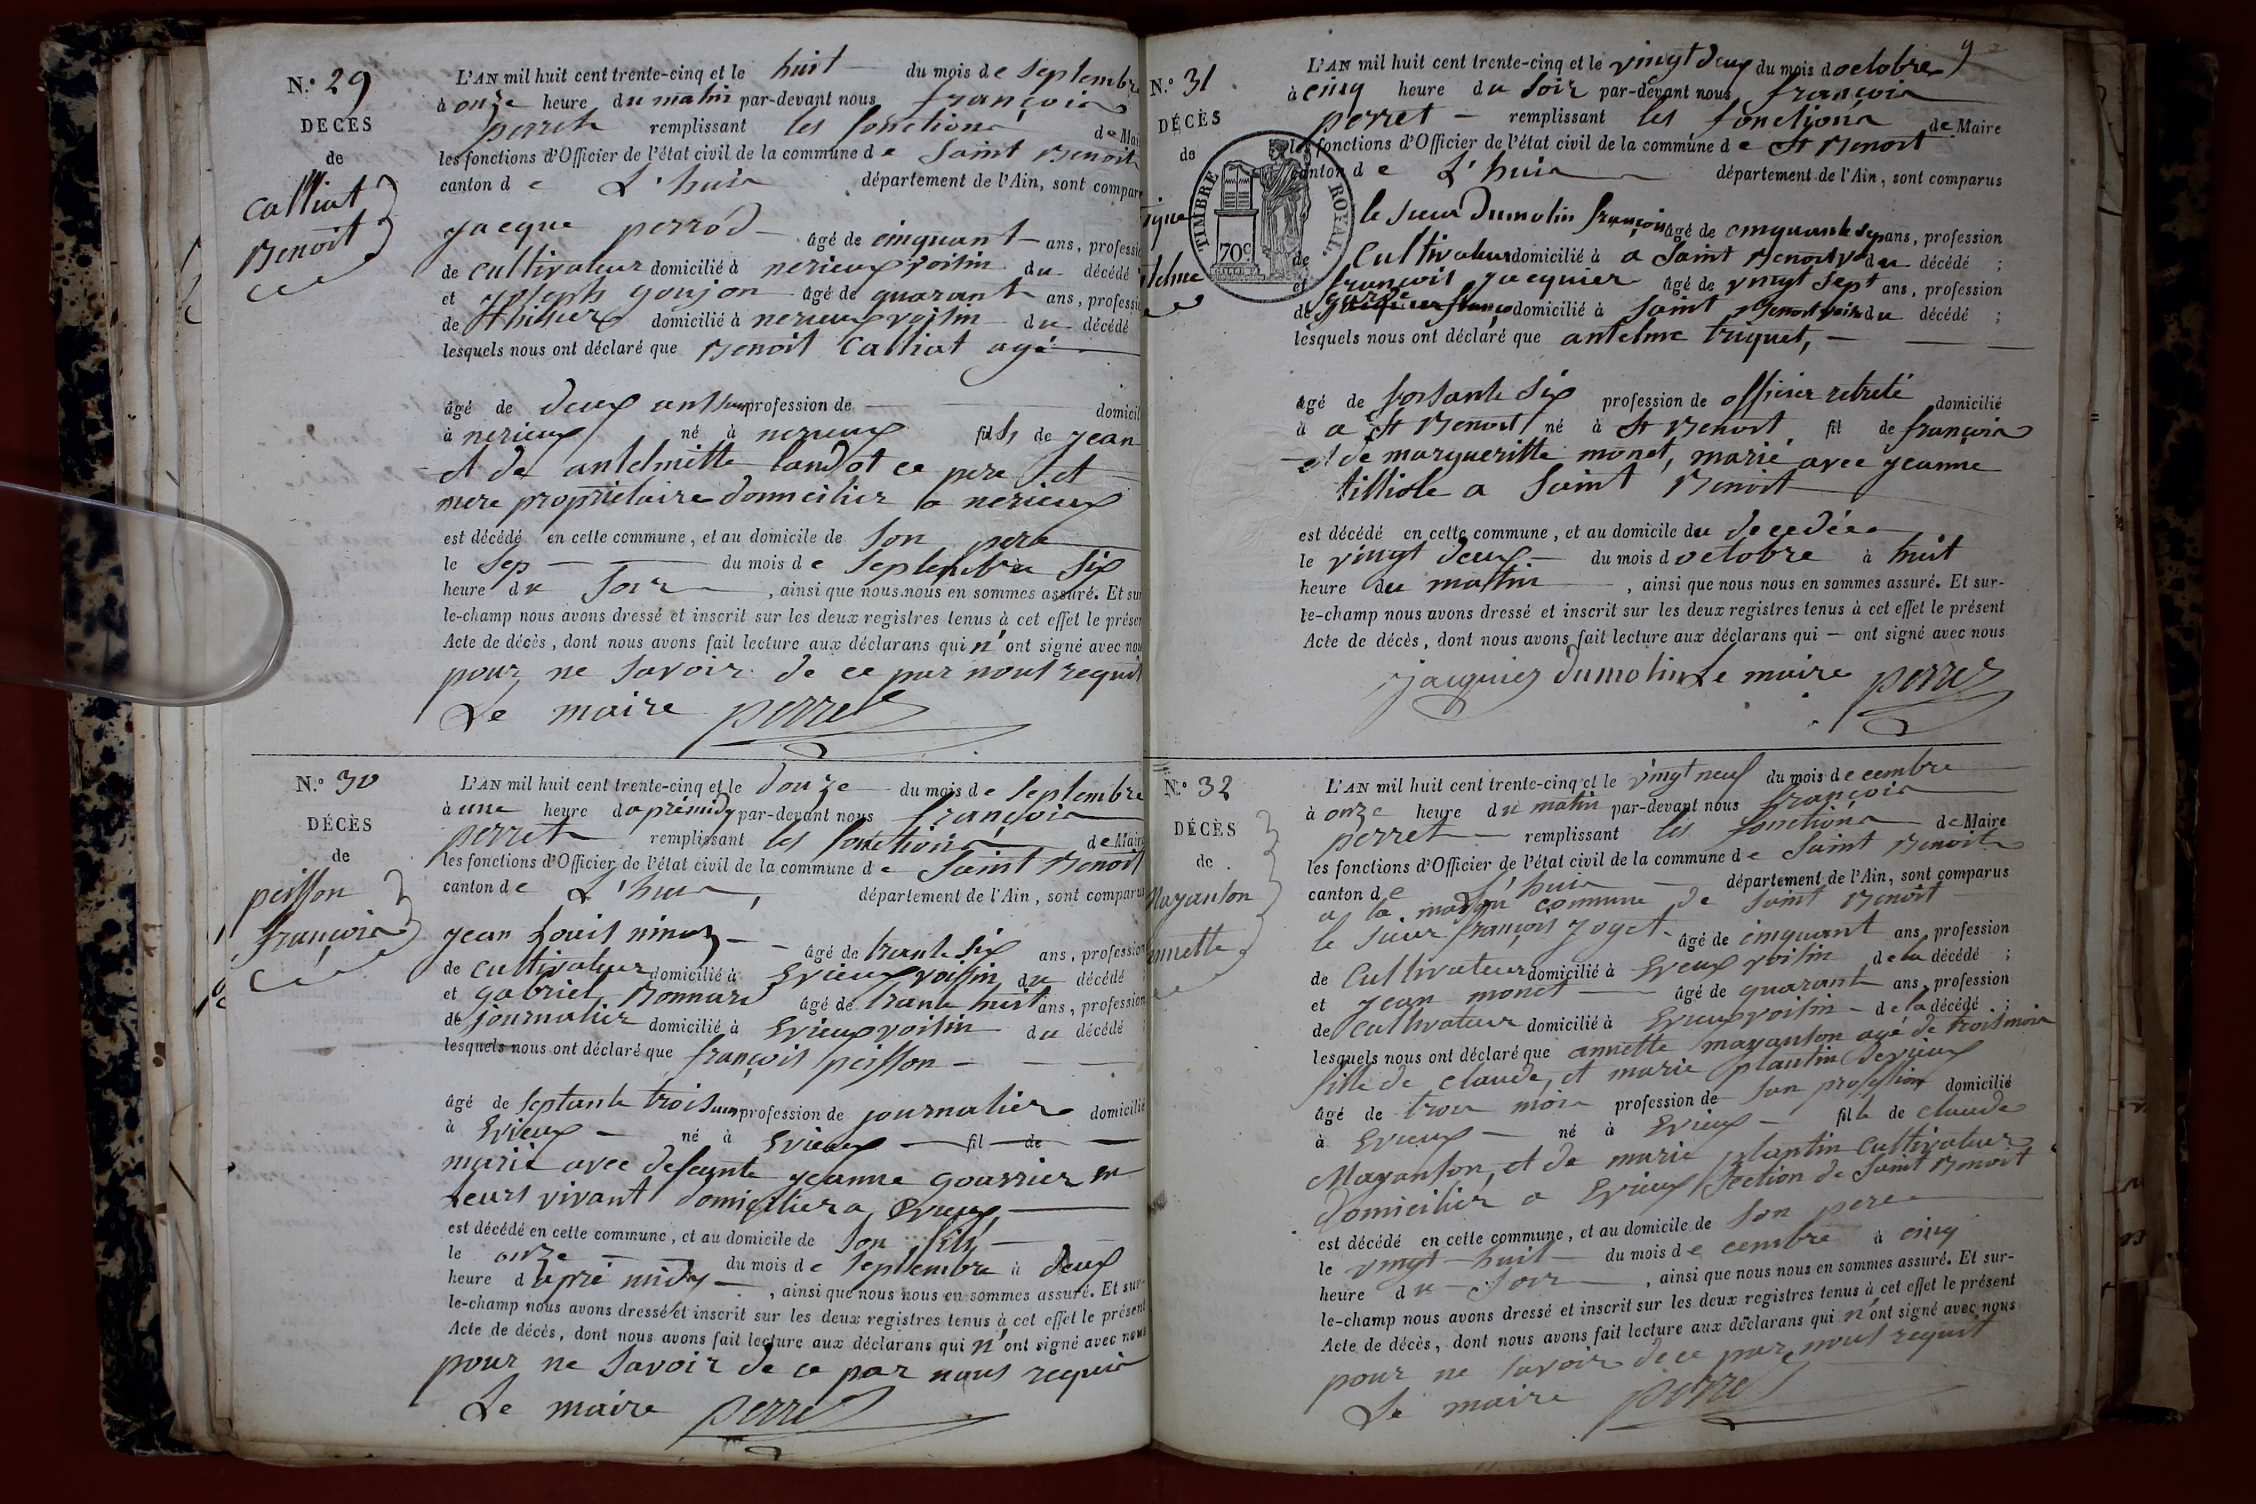 N.º 29
DÉCÈS
de
Calliat
Benoit
L'AN mil huit cent trente-cinq et le huit du mois de septembre
à onze heure du matin par-devant nous françois
perret remplissant les fonctions de Mai
les fonctions d'Officier de l'état civil de la commune de Saint Benoit
canton de L'huis département de l'Ain, sont compar
jacque perrod âgé de cinquant ans, professi
de cultivateur domicilié à nerieux voisin du décédé
et joseph goujon âgé de quarant ans, professi
de domicilié à nerieux voisin du décédé
lesquels nous ont déclaré que Benoit Calliat agé
âgé de deux ans profession de domicil
à nerieux né à nerieux fils de jean
et de antelmette landot ce pere et
mere proprietaire domicilier a nerieux
est décédé en cette commune, et au domicile de son pere
le sep du mois de septembre à six
heure du soir, ainsi que nous nous en sommes assuré. Et sur
le-champ nous avons dressé et inscrit sur les deux registres tenus à cet effet le présen
Acte de décès, dont nous avons fait lecture aux déclarans qui n'ont signé avec nou
pour ne savoir de ce par nous requit
Le maire perret
N.º 30
DÉCÈS
de
peisson
françois
L'AN mil huit cent trente-cinq et le douze du mois de septembre
à une heure daprémidy par-devant nous françois
perret remplissant les fonctions de Maire
les fonctions d'Officier de l'état civil de la commune de Saint Benoit
canton de L'huis, département de l'Ain, sont comparus
jean Louis âgé de trante six ans, profession
de cultivateur domicilié à Evieux voisin du décédé
et gabriel Bonnard âgé de trante huit ans, profession
de journalier domicilié à Evieux voisin du décédé
lesquels nous ont déclaré que françois peisson
âgé de septante trois ans profession de journalier domicilié
à Evieux né à Evieux fil de
marié avec defeunte jeanne gourrier en
leurs vivant domicilier a Evieux,
est décédé en cette commune, et au domicile de son fils
le onze du mois de septembre à deux
heure dapré midy, ainsi que nous nous en sommes assuré. Et sur-
le-champ nous avons dressé et inscrit sur les deux registres tenus à cet effet le présent
Acte de décès, dont nous avons fait lecture aux déclarans qui n'ont signé avec nous
pour ne savoir de ce par nous requis
Le maire perret
9
N.º 31
DÉCÈS
de
TIMBRE ROYAL
70c
L'AN mil huit cent trente-cinq et le vingt deux du mois doctobre
à cinq heure du soir par-devant nous françois
perret remplissant les fonctions de Maire
les fonctions d'Officier de l'état civil de la commune de St Benoit
canton de L'huis département de l'Ain, sont comparus
le sieur Dumolin françois âgé de cinquante sep ans, profession
de Cultivateur domicilié à a Saint Benoit du décédé ;
et françois jacquier âgé de vingt sept ans, profession
de garde domicilié à Saint Benoit voisin du décédé ;
lesquels nous ont déclaré que antelme triquet,
âgé de sossante six profession de officier retreté domicilié
à a St Benoit né à St Benoit fil de françois
et de margueritte monet, marié avec jeanne
tilliole a Saint Benoit
est décédé en cette commune, et au domicile du decedée
le vingt deux du mois doctobre à huit
heure du matin, ainsi que nous nous en sommes assuré. Et sur-
le-champ nous avons dressé et inscrit sur les deux registres tenus à cet effet le présent
Acte de décès, dont nous avons fait lecture aux déclarans qui — ont signé avec nous
jacquier dumolin Le maire perret
N.º 32
DÉCÈS
de
Mayanson
annette
L'AN mil huit cent trente-cinq et le vingt neuf du mois de cembre
à onze heure du matin par-devant nous françois
perret remplissant les fonctions de Maire
les fonctions d'Officier de l'état civil de la commune de Saint Benoit
canton de L'huis département de l'Ain, sont comparus
a la maison commune de Saint Benoit
le sieur françois joget âgé de cinquant ans, profession
de Cultivateur domicilié à Evieux voisin de la décédé ;
et jean monet âgé de quarant ans, profession
de cultivateur domicilié à Evieux voisin de la décédé ;
lesquels nous ont déclaré que annette mayanson agé de trois mois
fille de claude, et marie plantin devieux
âgé de trois mois profession de san profession domicilié
à Evieux né à Evieux fille de claude
Mayanson, et de marie plantin cultivateur
domicilier a Evieux section de Saint Benoit
est décédé en cette commune, et au domicile de son pere
le vingt huit du mois de cembre à cinq
heure du soir, ainsi que nous nous en sommes assuré. Et sur-
le-champ nous avons dressé et inscrit sur les deux registres tenus à cet effet le présent
Acte de décès, dont nous avons fait lecture aux déclarans qui n'ont signé avec nous
pour ne savoir de ce par nous requit
Le maire perret